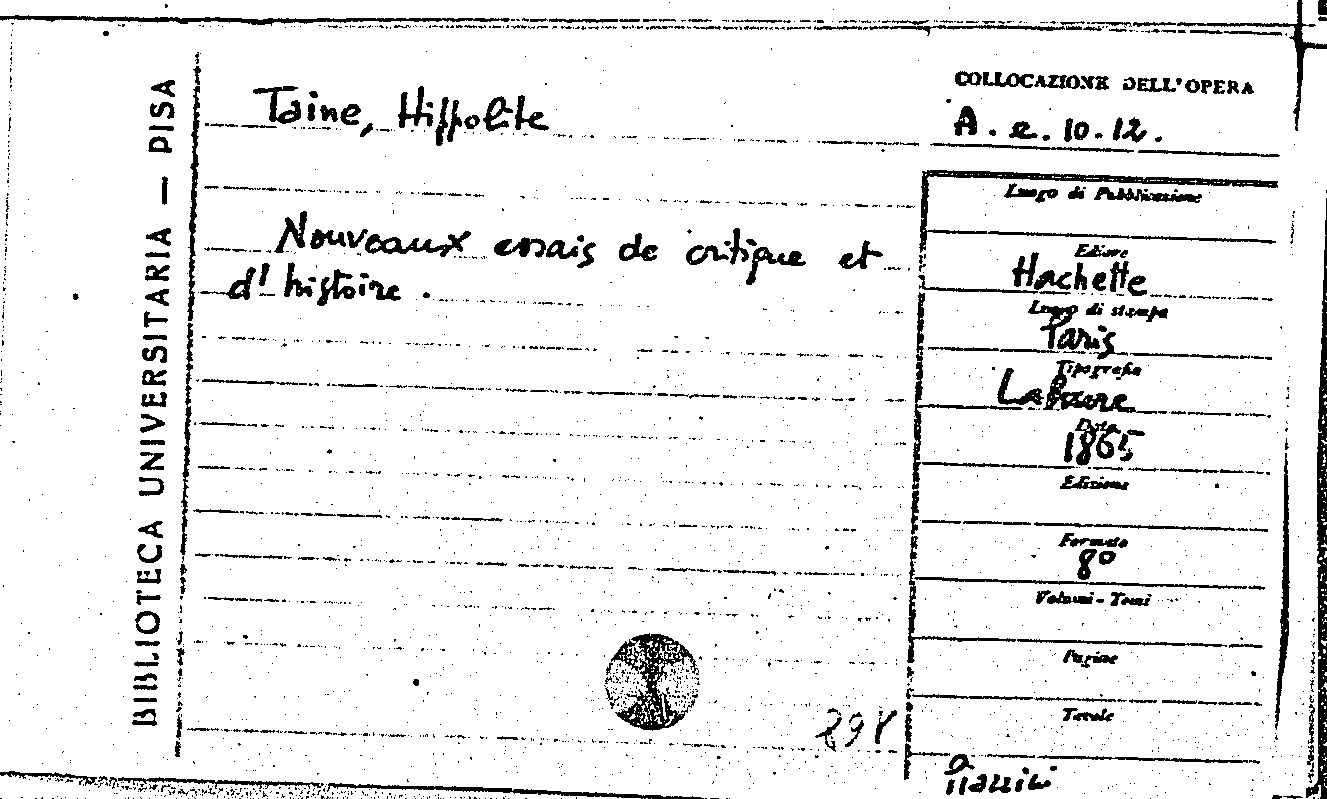 BIBLIOTECA UNIVERSITARIA — PISA
Taine, Hippolite
Nouveaux essais de critique et
d'histoire.
COLLOCAZIONE DELL'OPERA
A. e. 10. 12.
Luogo di Pubblicazione
Editore
Hachette
Luogo di stampa
Paris
Tipografia
Lahure
Data
1865
Edizione
Formato
8º
Volumi - Tomi
Pagine
Tavole